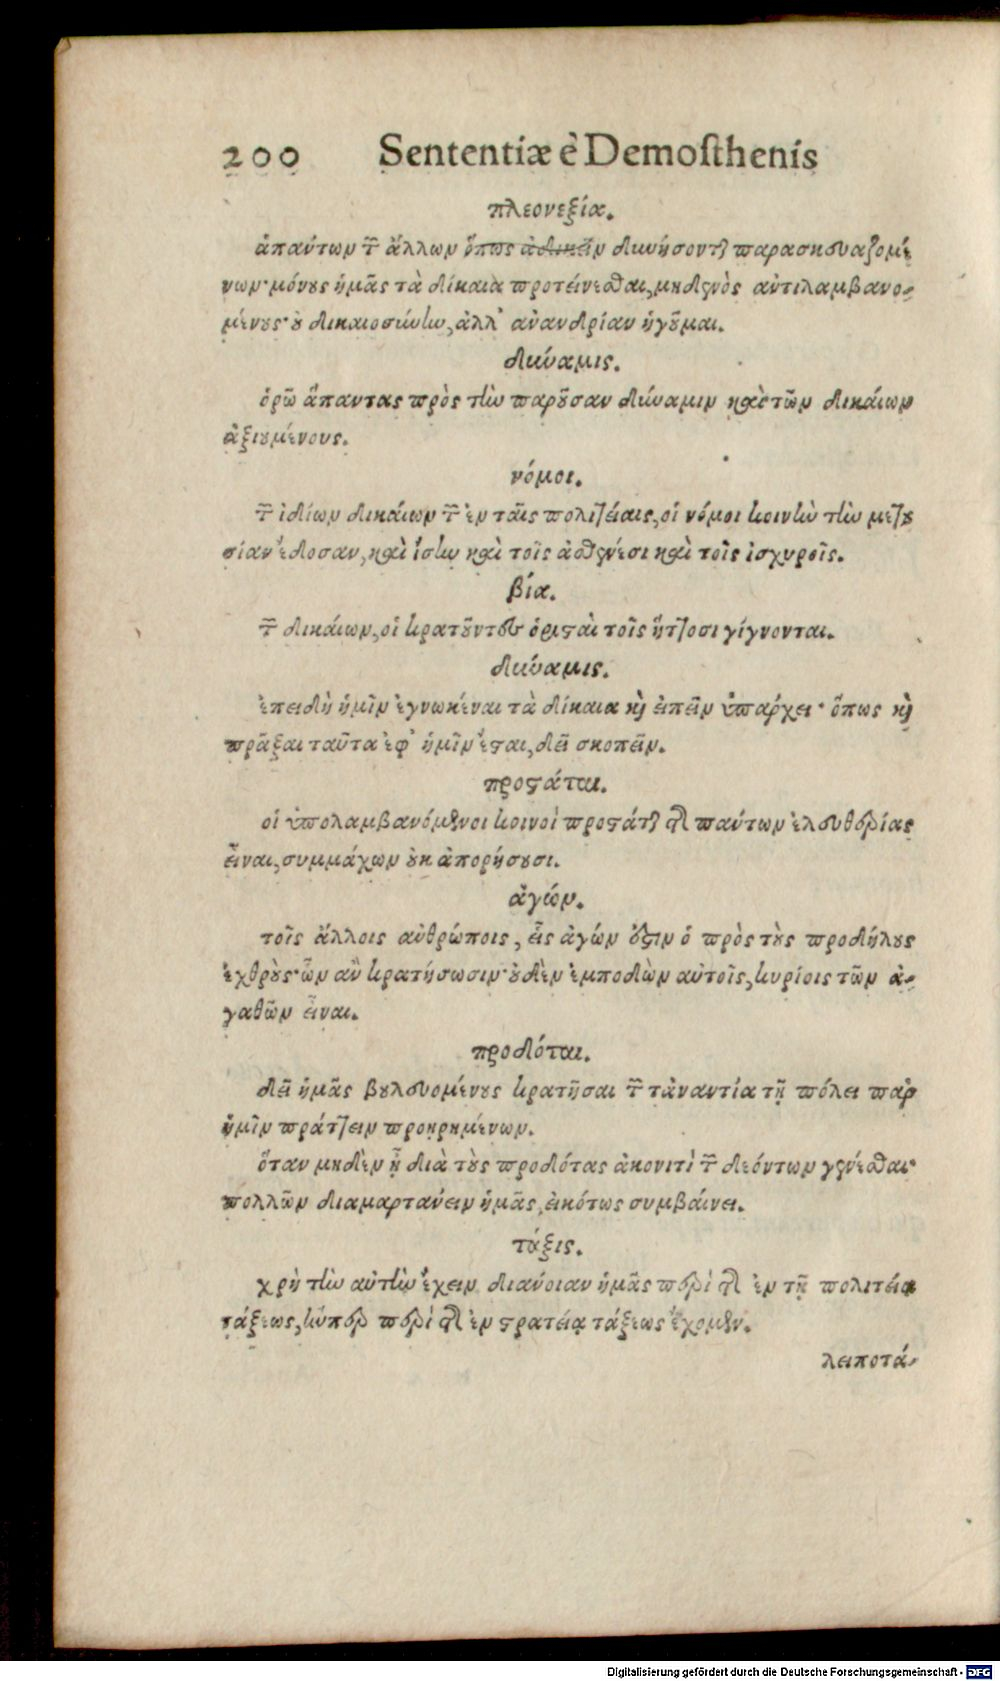 200 Sententiæ è Demoſthenis
πλεονεξία.
ἁπάντων τῶν ἄλλων ὅπως ἀδικεῖν δυνήσονται παρασκευαζομέ
νων· μόνους ἡμᾶς τὰ δίκαια προτείνεσθαι, μηδενὸς ἀντιλαμβανο-
μένους· οὐ δικαιοσύνην, ἀλλ' ἀνανδρίαν ἡγοῦμαι.
δύναμις.
ὁρῶ ἅπαντας πρὸς τὴν παροῦσαν δύναμιν καὶ τῶν δικαίων
ἀξιουμένους.
νόμοι.
τῶν ἰδίων δικαίων τῶν ἐν ταῖς πολιτείαις, οἱ νόμοι κοινὴν τὴν μετου
σίαν ἔδοσαν, καὶ ἴσην καὶ τοῖς ἀσθενέσι καὶ τοῖς ἰσχυροῖς.
βία.
τῶν δικαίων, οἱ κρατοῦντες ὁρισταὶ τοῖς ἥττοσι γίγνονται.
δύναμις.
ἐπειδὴ ἡμῖν ἐγνωκέναι τὰ δίκαια καὶ εἰπεῖν ὑπάρχει· ὅπως καὶ
πρᾶξαι ταῦτα ἐφ' ἡμῖν ἔσται, δεῖ σκοπεῖν.
προστάται.
οἱ ὑπολαμβανόμενοι κοινοὶ προστάται τῆς πάντων ἐλευθερίας
εἶναι, συμμάχων οὐκ ἀπορήσουσι.
ἀγών.
τοῖς ἄλλοις ἀνθρώποις, εἷς ἀγών ἐστιν ὁ πρὸς τοὺς προδήλους
ἐχθρούς· ὧν ἂν κρατήσωσιν· οὐδὲν ἐμποδὼν αὐτοῖς, κυρίοις τῶν ἀ-
γαθῶν εἶναι.
προδόται.
δεῖ ἡμᾶς βουλευομένους κρατῆσαι τῶν τἀναντία τῇ πόλει παρ'
ἡμῖν πράττειν προῃρημένων.
ὅταν μηδὲν ᾖ διὰ τοὺς προδότας ἀκονιτὶ τῶν δεόντων γενέσθαι·
πολλῶν διαμαρτάνειν ἡμᾶς, εἰκότως συμβαίνει.
τάξις.
χρὴ τὴν αὐτὴν ἔχειν διάνοιαν ἡμᾶς περὶ τῆς ἐν τῇ πολιτείᾳ
τάξεως, ἥνπερ περὶ τῆς ἐν στρατείᾳ τάξεως ἔχομεν.
λειποτά-
Digitalisierung gefördert durch die Deutsche Forschungsgemeinschaft - DFG